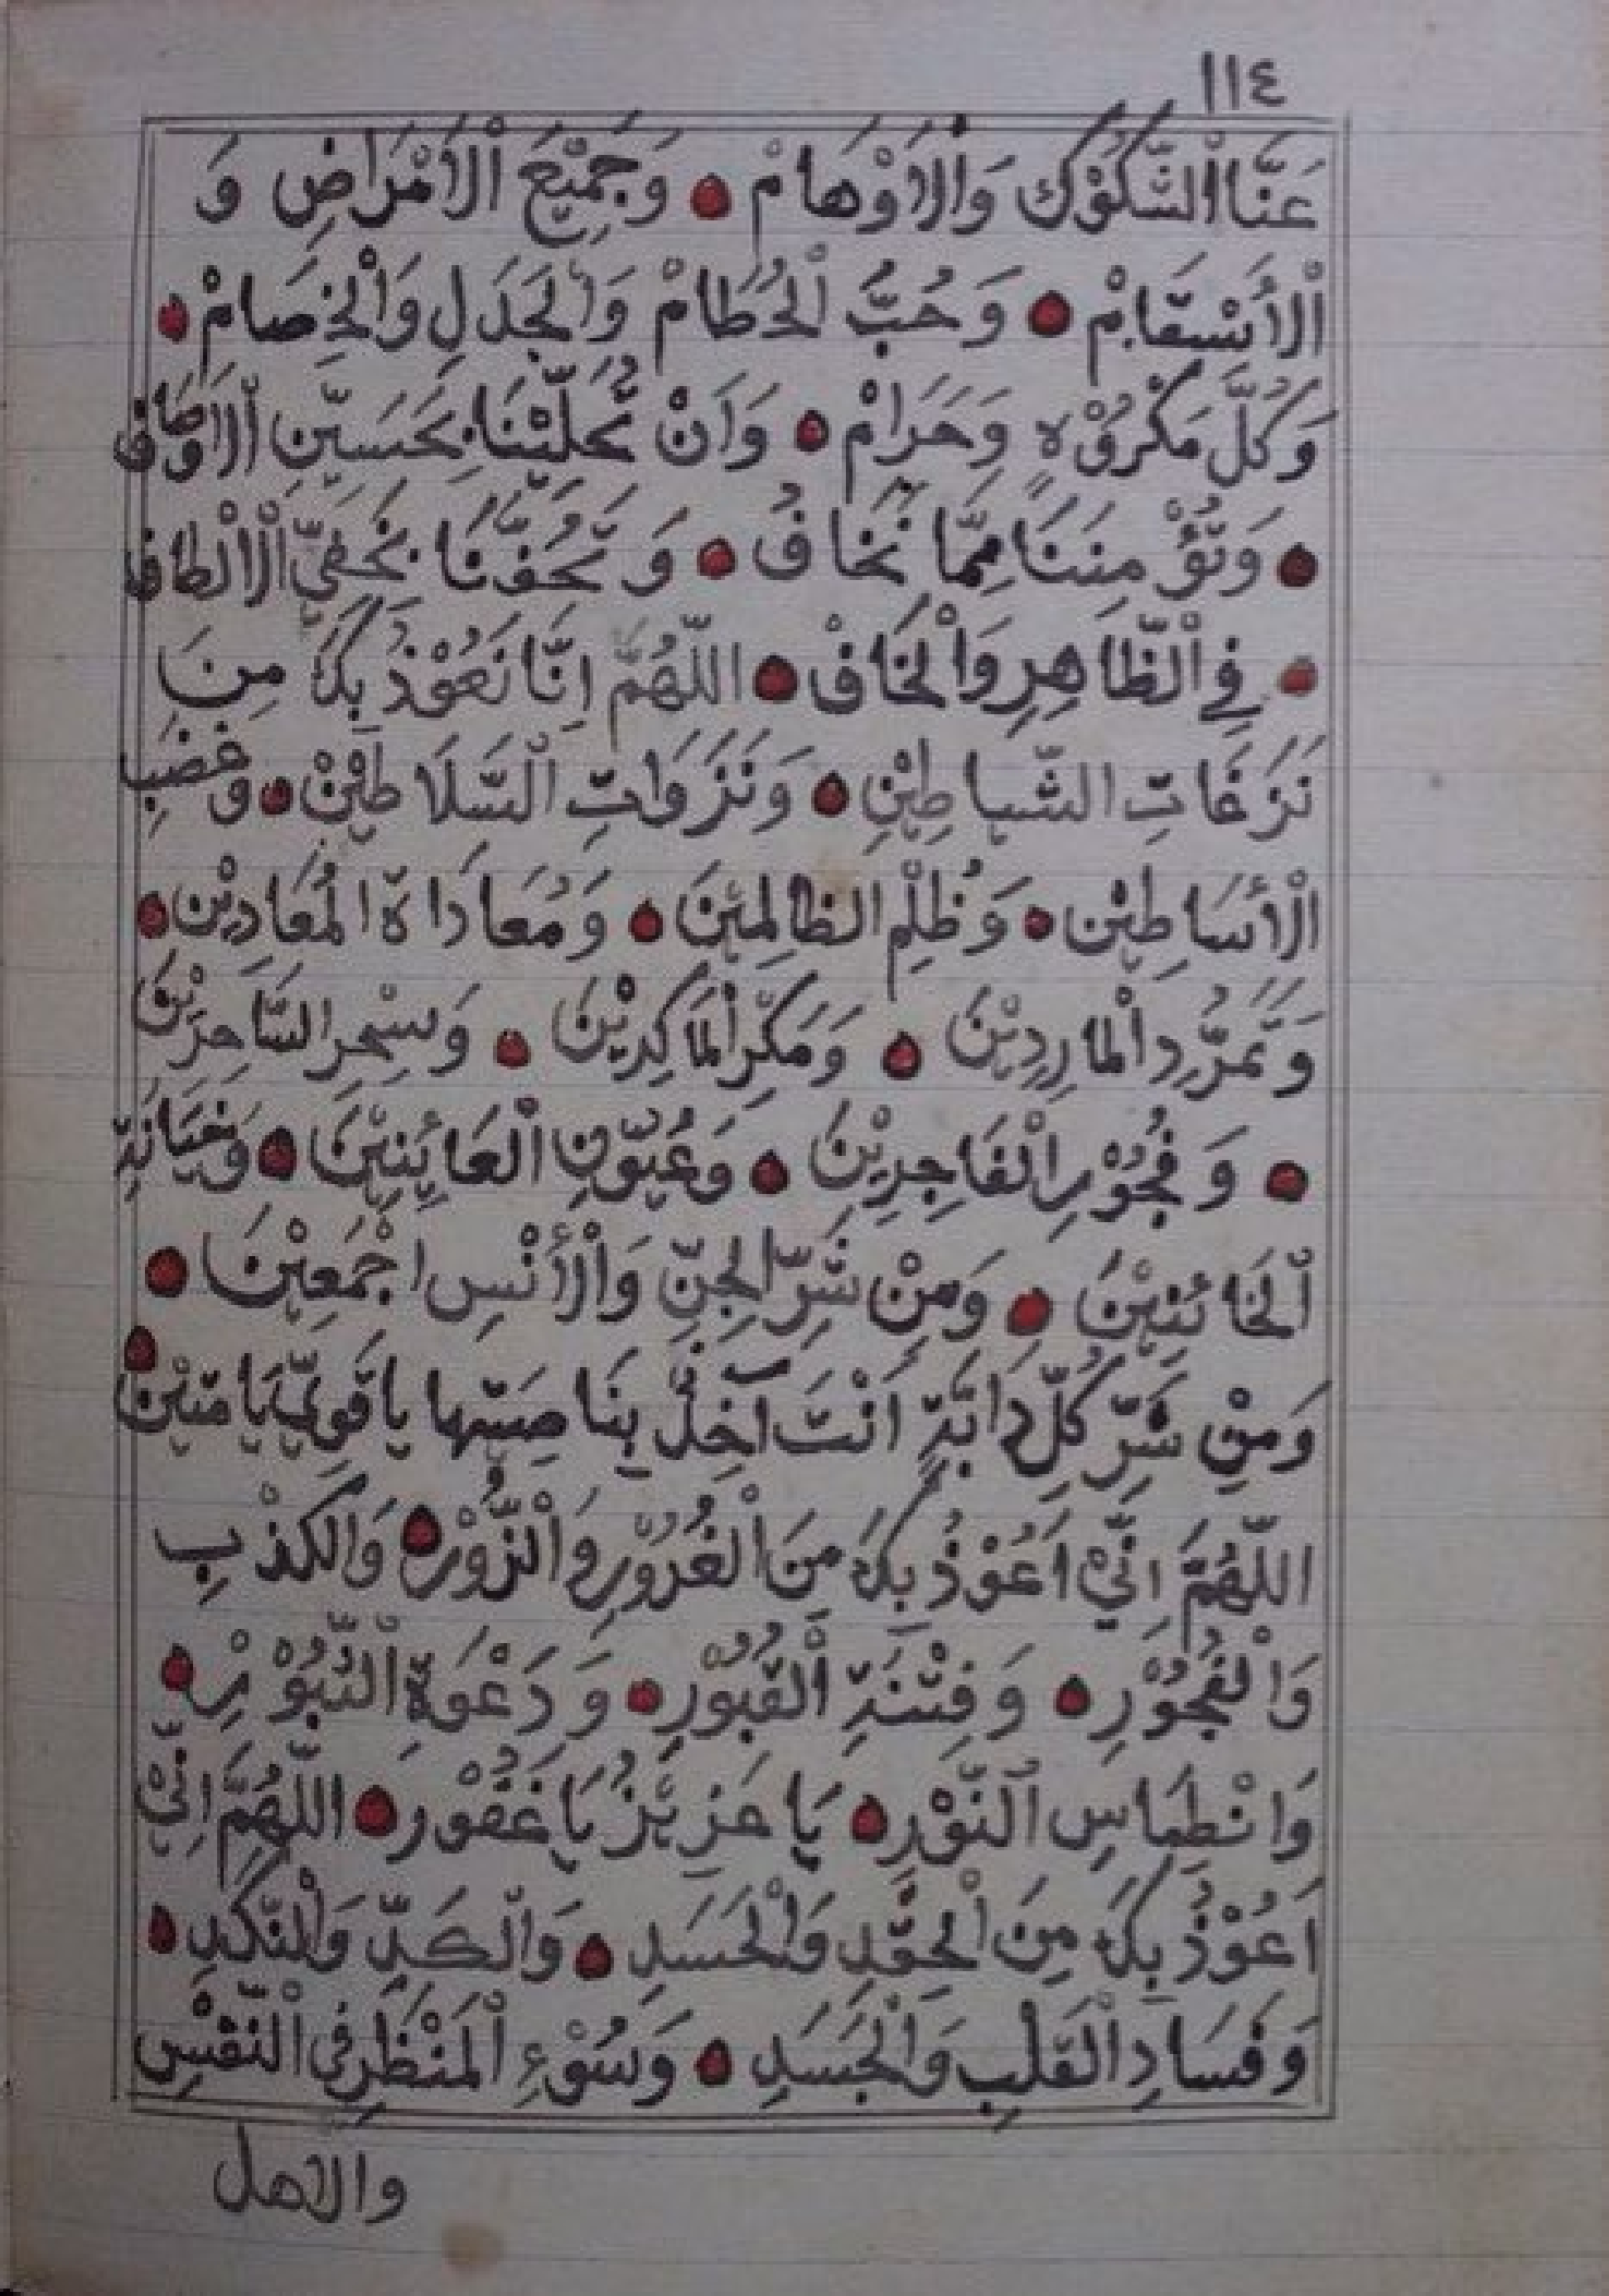 ١١٤
عَنَّا الشُّكُوْكَ وَالْاَوْهَامْ ۝ وَجَمِيْعَ الْاَمْرَاضِ وَ
الْاَسْقَامْ ۝ وَحُبَّ الْحُطَامْ وَالْجَدَلِ وَالْخِصَامْ ۝
وَكُلَّ مَكْرُوْهٍ وَحَرَامْ ۝ وَاَنْ تُحَلِّيَنَا بِحَسِيْنِ الْاَوْصَافْ
۝ وَتُؤْمِنَنَا مِمَّا نَخَافُ ۝ وَتَحُفَّنَا بِخَفِيِّ الْاَلْطَافْ
۝ فِي الظَّاهِرِ وَالْخَافْ ۝ اللّٰهُمَّ اِنَّا نَعُوْذُ بِكَ مِنَ
نَزَغَاتِ الشَّيَاطِيْنِ ۝ وَنَزَوَاتِ السَّلَاطِيْنْ ۝ وَغَضَبِ
الْأَسَاطِيْن ۝ وَظُلْمِ الظَالِمِيْنَ ۝ وَمُعَادَاةِ الْمُعَادِيْن ۝
وَتَمَرُّدِ الْمارِدِيْنَ ۝ وَمَكْرِ الْمَاكِرِيْنَ ۝ وَسِحْرِ السَّاحِرِيْنَ
۝ وَفُجُوْرِ الْفَاجِرِيْنَ ۝ وَعُيُوْنِ الْعَائِنِيْنَ ۝ وَخِيَانَةِ
الْخَائِنِيْنَ ۝ وَمِنْ شَرِّ الْجِنِّ وَالْأِنْسِ اَجْمَعِيْنَ ۝
وَمِنْ شَرِّ كُلِّ دَابَّةٍ اَنْتَ آخِذٌ بِنَاصِيَتِها يا قَوِيُّ يَا مَتِيْن ۝
اللّٰهُمَّ اِنِّيْ اَعُوْذُ بِكَ مِنَ الْغُرُوْرِ وَالزُّوْرِ ۝ وَالْكِذْبِ
وَالْفُجُوْرِ ۝ وَفِتْنَةِ الْقُبُوْرِ ۝ وَدَعْوَةِ الثُّبُوْرِ ۝
وَانْطِمَاسِ النُّوْرِ ۝ يَا عَزِيْزُ يَا غَفُوْر ۝ اللّٰهُمَّ اِنِّيْ
اَعُوْذُ بِكَ مِنَ الْحِقْدِ وَالْحَسَدِ ۝ وَالْكَدِّ وَالنَّكَدِ ۝
وَفَسَادِ الْقَلْبِ وَالْجَسَدِ ۝ وَسُوْءِ الْمَنْظَرِ فِي النَّفْسِ
والاهل